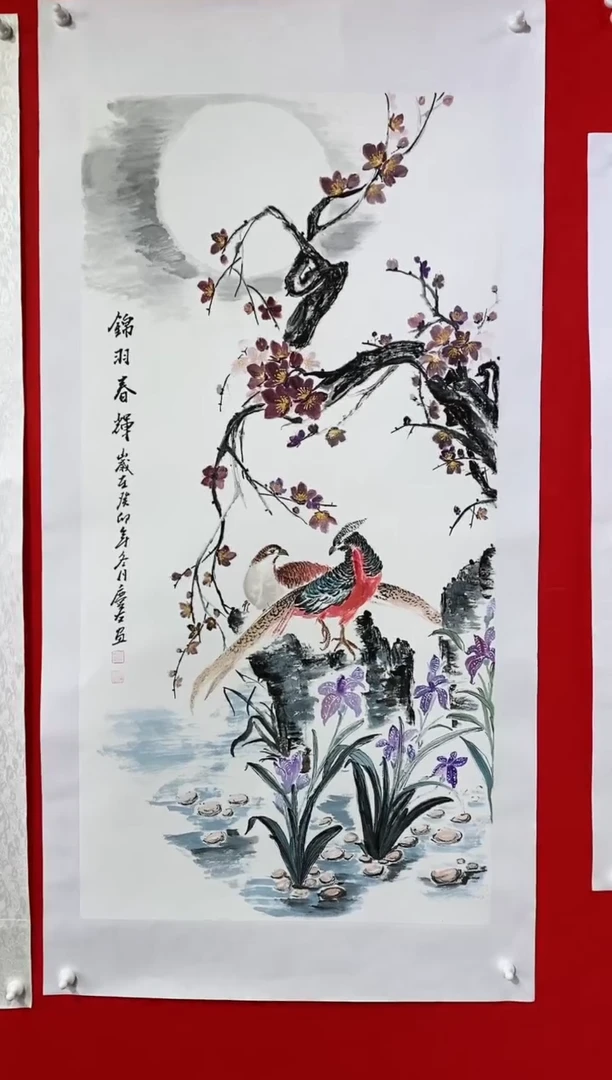 錦羽春輝歲在癸卯年冬月